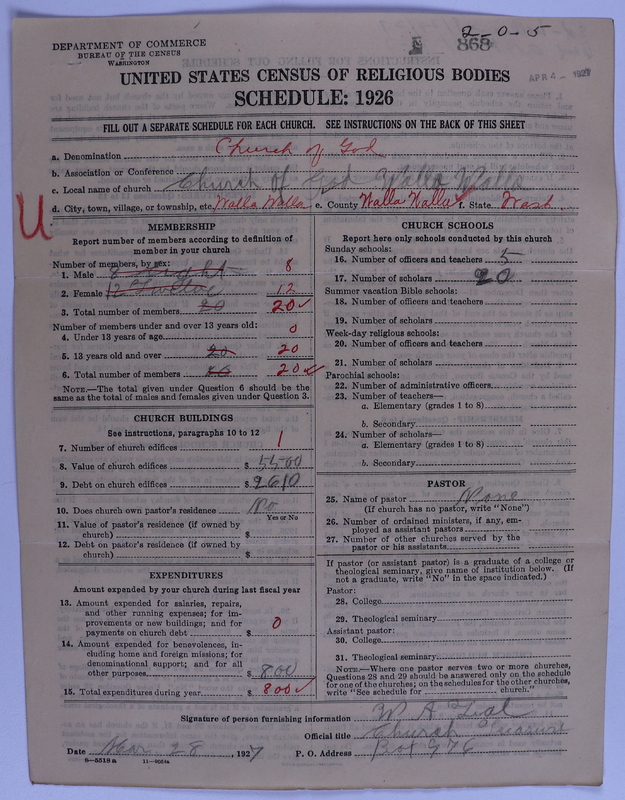 2-0-5
868
DEPARTMENT OF COMMERCE
BUREAU OF THE CENSUS
WASHINGTON
APR 4 - 1927
UNITED STATES CENSUS OF RELIGIOUS BODIES
SCHEDULE: 1926
FILL OUT A SEPARATE SCHEDULE FOR EACH CHURCH. SEE INSTRUCTIONS ON THE BACK OF THIS SHEET
a. Denomination Church of God
b. Association or Conference
c. Local name of church Church of God Walla Walla
d. City, town, village, or township, etc. Walla Walla e. County Walla Walla f. State Wash.
U
MEMBERSHIP
Report number of members according to definition of
member in your church
Number of members, by sex:
1. Male 8 Eight 8
2. Female 12 Twelve 12
3. Total number of members 20 20 ✓
Number of members under and over 13 years old:
4. Under 13 years of age 0
5. 13 years old and over 20 20
6. Total number of members 20 ✓
NOTE.—The total given under Question 6 should be the
same as the total of males and females given under Question 3.
CHURCH BUILDINGS
See instructions, paragraphs 10 to 12
7. Number of church edifices 1
8. Value of church edifices $ 5500
9. Debt on church edifices $ 2610
10. Does church own pastor's residence No
Yes or No
11. Value of pastor's residence (if owned by
church) $
12. Debt on pastor's residence (if owned by
church) $
EXPENDITURES
Amount expended by your church during last fiscal year
13. Amount expended for salaries, repairs,
and other running expenses; for im-
provements or new buildings; and for
payments on church debt $ 0
14. Amount expended for benevolences, in-
cluding home and foreign missions; for
denominational support; and for all
other purposes $ 800
15. Total expenditures during year $ 800 ✓
CHURCH SCHOOLS
Report here only schools conducted by this church
Sunday schools:
16. Number of officers and teachers 5
17. Number of scholars 20
Summer vacation Bible schools:
18. Number of officers and teachers
19. Number of scholars
Week-day religious schools:
20. Number of officers and teachers
21. Number of scholars
Parochial schools:
22. Number of administrative officers
23. Number of teachers—
a. Elementary (grades 1 to 8)
b. Secondary
24. Number of scholars—
a. Elementary (grades 1 to 8)
b. Secondary
PASTOR
25. Name of pastor None
(If church has no pastor, write "None")
26. Number of ordained ministers, if any, em-
ployed as assistant pastors
27. Number of other churches served by the
pastor or his assistants
If pastor (or assistant pastor) is a graduate of a college or
theological seminary, give name of institution below. (If
not a graduate, write "No" in the space indicated.)
Pastor:
28. College
29. Theological seminary
Assistant pastor:
30. College
31. Theological seminary
NOTE.—Where one pastor serves two or more churches,
Questions 28 and 29 should be answered only on the schedule
for one of the churches; on the schedules for the other churches,
write "See schedule for church."
Signature of person furnishing information W A
Official title Church Treasurer
Date Mar 28, 1927 P. O. Address Box 976
8-5518a 11-9054a